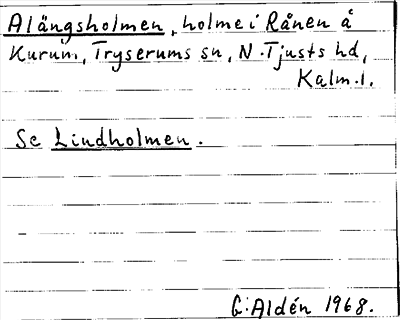 Alängsholmen, holme i Rånen å
Kurum, Tryserums sn, N. Tjusts hd,
Kalm. l.
Se Lindholmen.
G. Aldén 1968.